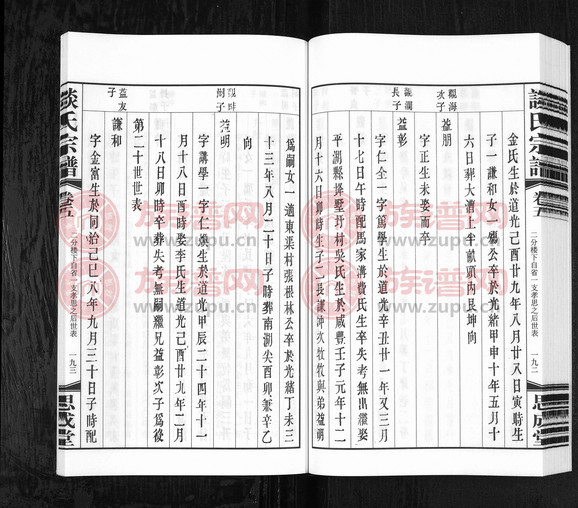 談氏宗譜
卷五
二分楼下自省一支孝思之后世表
一九二
思成堂
金氏生於道光己酉廿九年八月廿八日寅時生
子一謙和女一應公卒於光緒甲申十年五月十
六日葬大漕上半畝頭內艮坤向
觀海
次子
益朋
字正生未娶而卒
觀瀾
長子
益彰
字仁全一字篤學生於道光辛丑廿一年又三月
十七日午時配馬家溝費氏生卒失考無出繼娶
平湖縣
墅圩村吳氏生於咸豐壬子元年十二
月十六日卯時生子二長謙沖次牧牧與弟益明
為嗣女一適東渠村張根林公卒於光緒丁未三
十三年八月二十日子時葬南湖尖酉卯兼辛乙
向
益明
字講學一字仁煥生於道光甲辰二十四年十一
月十八日酉時娶李氏生於道光己酉廿九年二月
十八日卯時卒葬失考無嗣繼兄益彰次子為後
第二十世世表
益友
子
謙和
字金富生於同治己巳八年九月三十日子時配
談氏宗譜
卷五
二分楼下自省一支孝思之后世表
一九三
思成堂
族谱网
www.zupu.cn